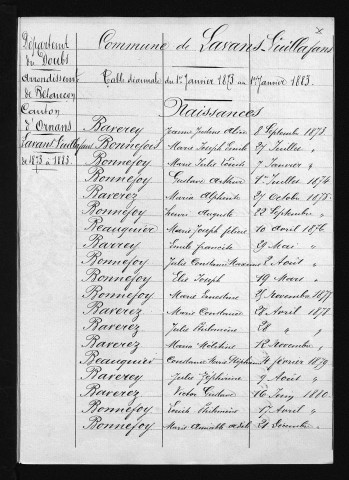 Département
du Doubs
Arrondissement
de Besançon
Canton
d'Ornans
Lavans-Vuillafans
de 1873 à 1883.
Commune de Lavans-Vuillafans
Table décennale du 1er Janvier 1873 au 1er Janvier 1883.
Naissances
Baverey Jeanne Justine Alice 8 Septembre 1873.
Bonnefoy Marie Joseph Emile 27 Juillet "
Bonnefoy Marie Julie 7 Janvier "
Bonnefoy Gustave Arsène 1er Juillet 1874
Baverez Maria Alphonse 27 Octobre 1875
Bonnefoy Auguste 22 Septembre "
Beauquier Marie Joseph 10 avril 1876
Barrey Emile francisque 29 Mai "
Bonnefoy Julie Constance 2 Août "
Bonnefoy Elie Joseph 19 Mars "
Bonnefoy Marie Ernestine Novembre 1877
Baverez Marie Constance 28 Avril 1878
Baverez Julie Philomène 28 "
Baverez Maria 12 Novembre "
Beauquier Constance Marie février 1879
Baverey Julie Joséphine 9 Août "
Baverez Victor Gustave 16 1880
Bonnefoy Philomène 17 Avril "
Bonnefoy Marie 21 Décembre "